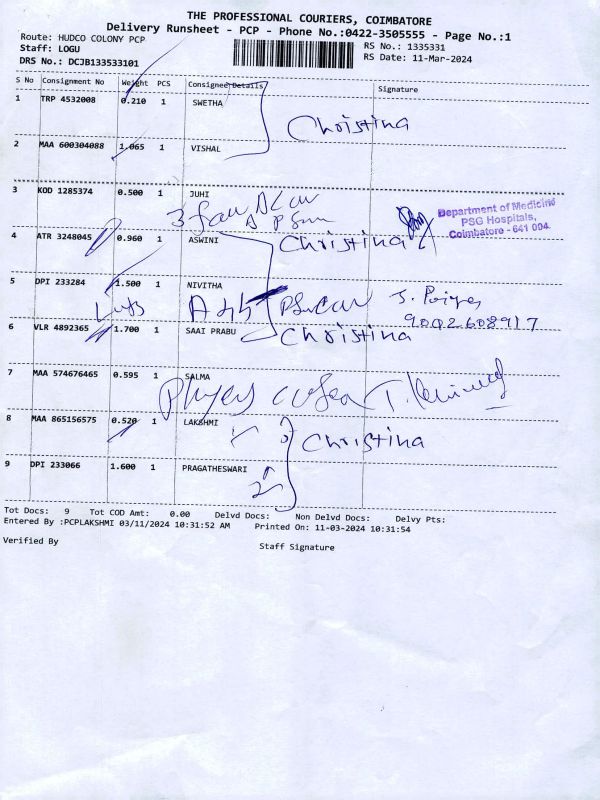 THE PROFESSIONAL COURIERS, COIMBATORE
Delivery Runsheet - PCP - Phone No.:0422-3505555 - Page No.:1
Route: HUDCO COLONY PCP RS No.: 1335331
Staff: LOGU RS Date: 11-Mar-2024
DRS No.: DCJB133533101
S No Consignment No Weight PCS Consignee Details Signature
1 TRP 4532008 0.210 1 SWETHA
Christina
2 MAA 600304088 1.065 1 VISHAL
3 KOD 1285374 0.500 1 JUHI
Department of Medicine
PSG Hospitals,
Coimbatore - 641 004.
4 ATR 3248045 0.960 1 ASWINI Christina
5 DPI 233284 1.500 1 NIVITHA
9002608917
6 VLR 4892365 1.700 1 SAAI PRABU Christina
7 MAA 574676465 0.595 1 SALMA
8 MAA 865156575 0.520 1 LAKSHMI
Christina
9 DPI 233066 1.600 1 PRAGATHESWARI
Tot Docs: 9 Tot COD Amt: 0.00 Delvd Docs: Non Delvd Docs: Delvy Pts:
Entered By :PCPLAKSHMI 03/11/2024 10:31:52 AM Printed On: 11-03-2024 10:31:54
Verified By Staff Signature